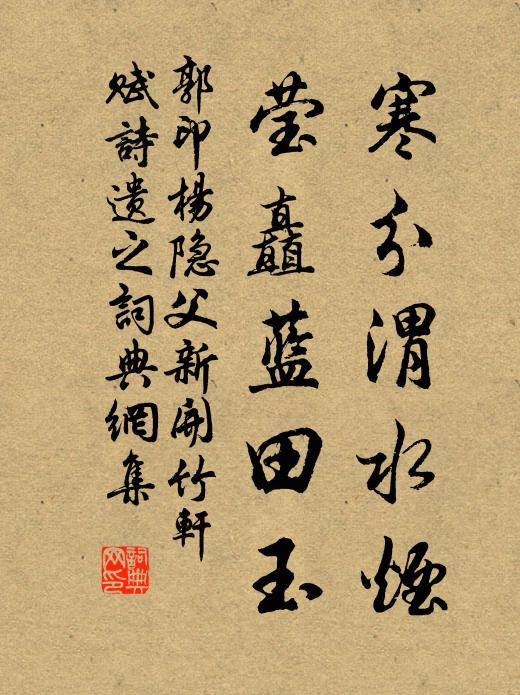 寒分渭水煙
莹矗藍田玉
郭印楊隐父新開竹軒
赋詩遺之詞典網集
詞典
网印